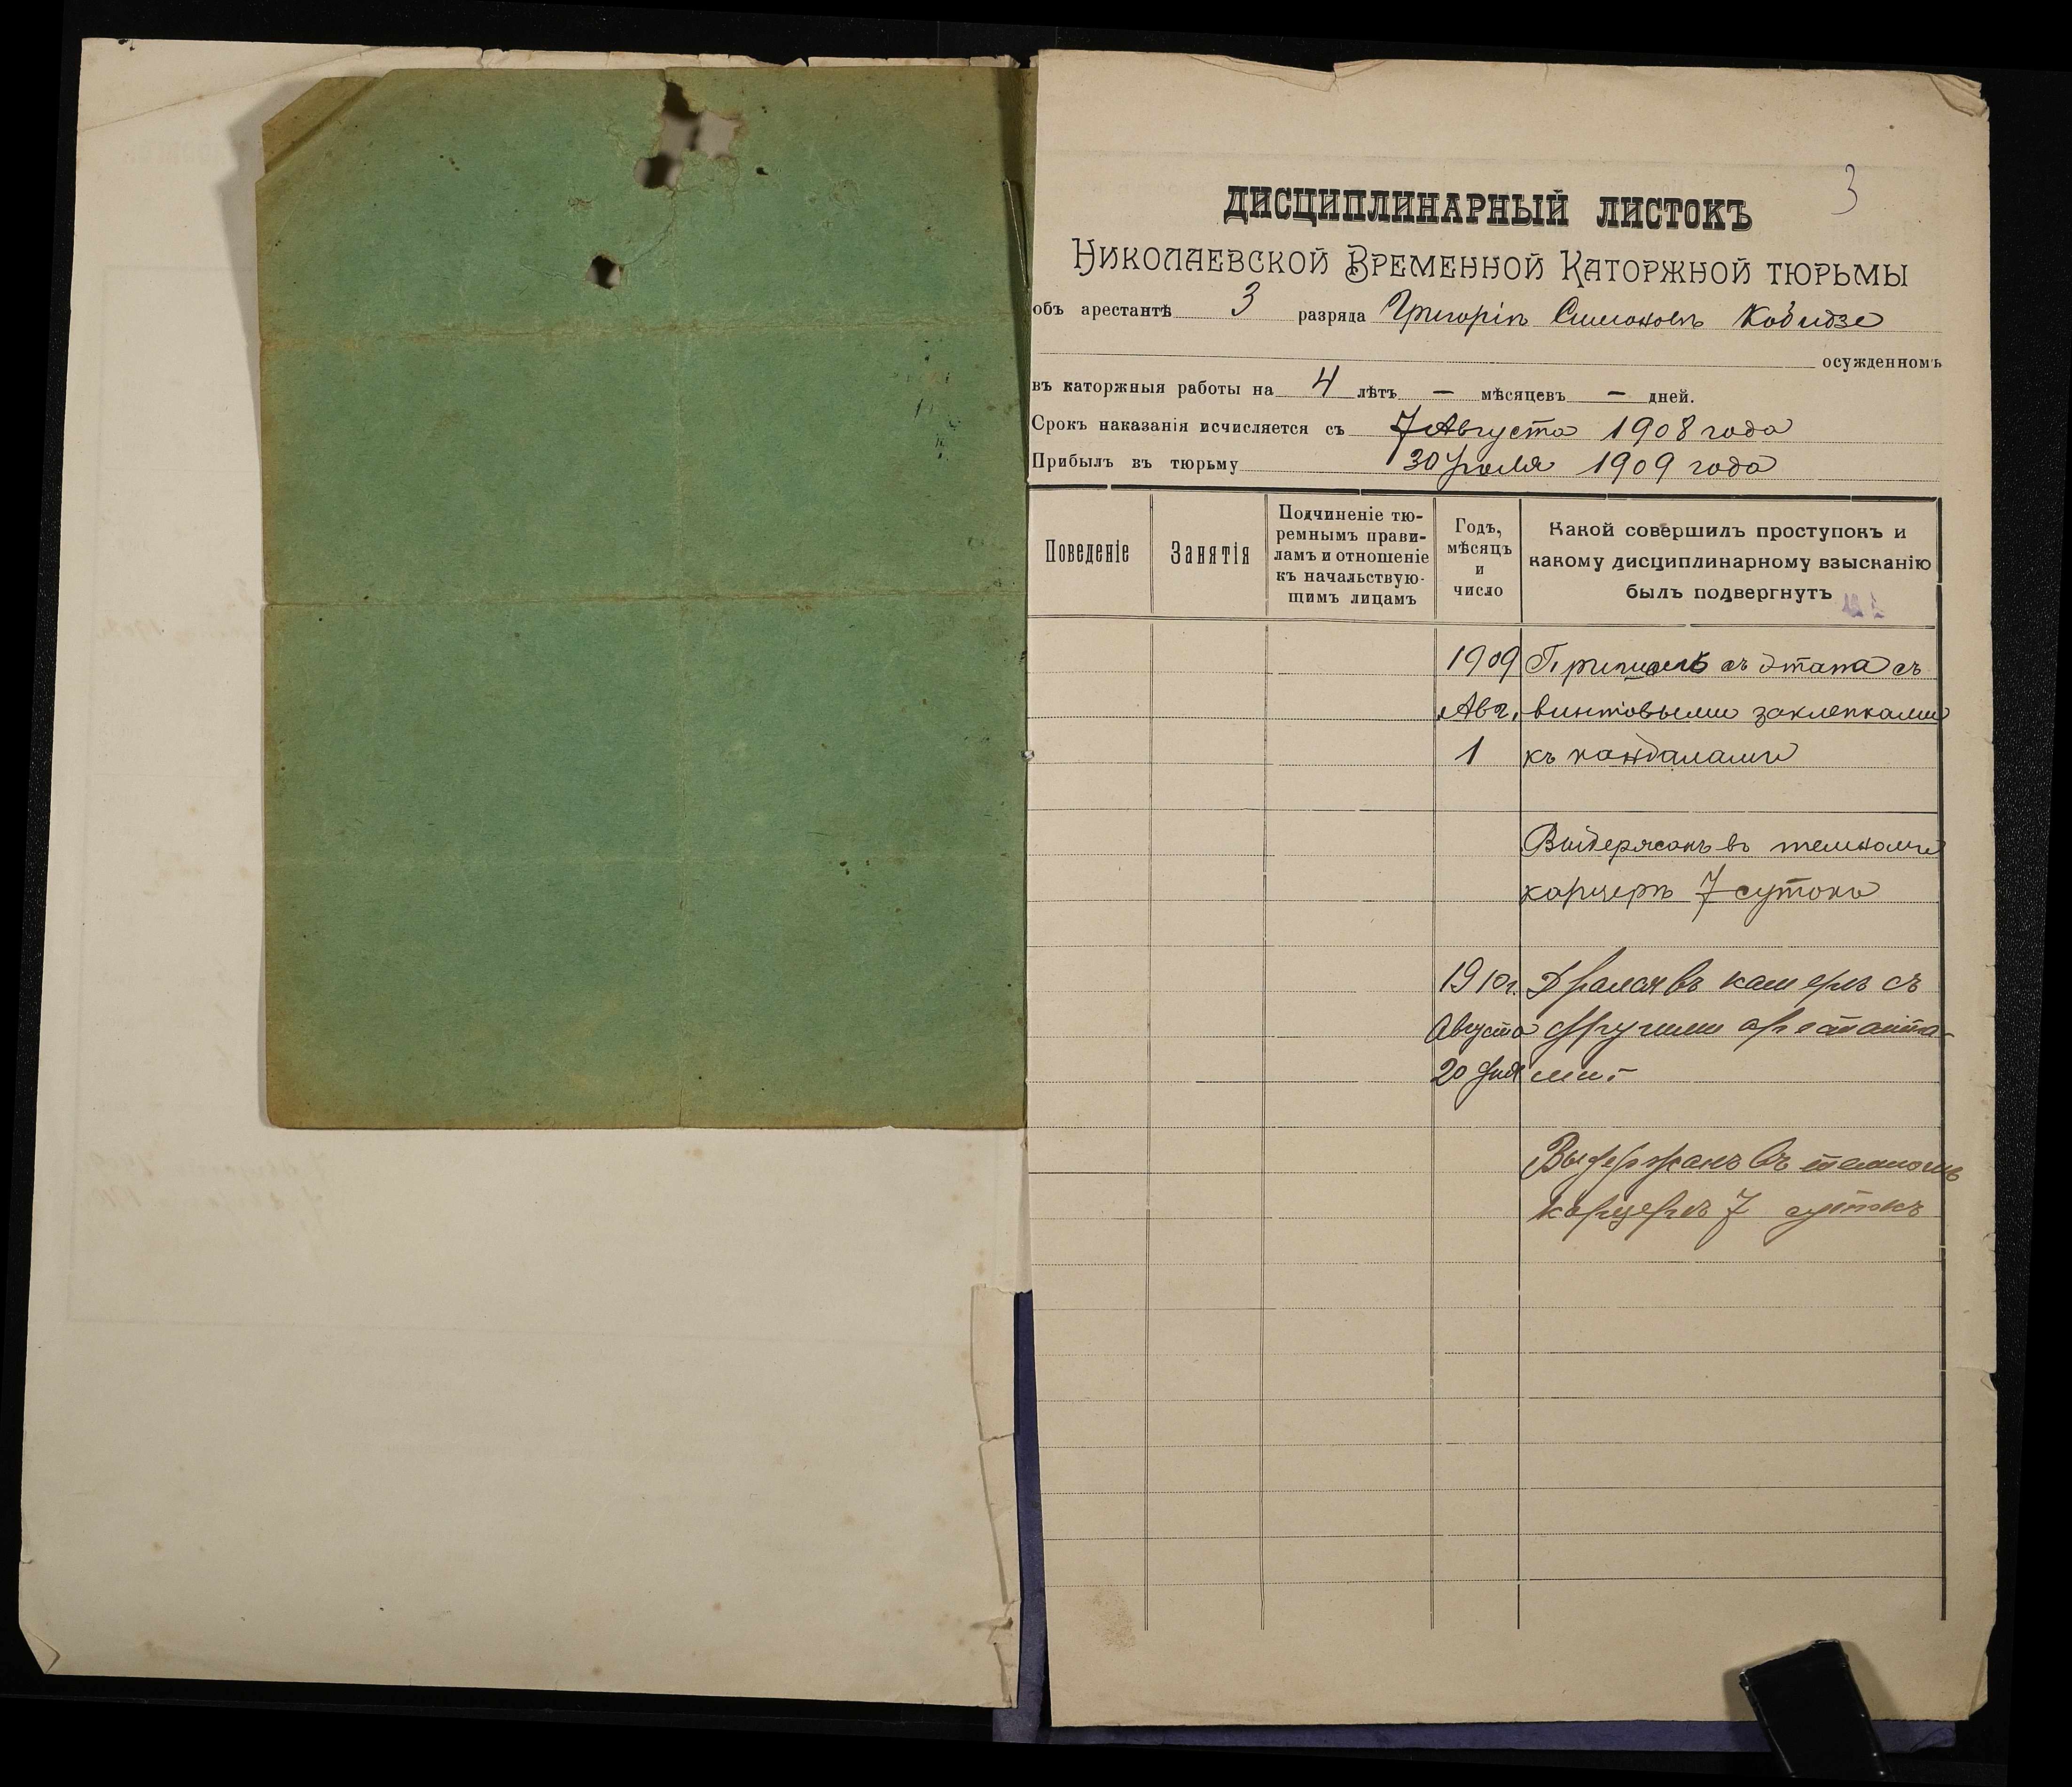 3
ДИСЦИПЛИНАРНЫЙ ЛИСТОКЪ
НИКОЛАЕВСКОЙ ВРЕМЕННОЙ КАТОРЖНОЙ ТЮРЬМЫ
объ арестантѣ 3 разряда Григоріѣ Симоновѣ Кобидзе
осужденномъ
въ каторжныя работы на 4 лѣтъ — мѣсяцевъ — дней.
Срокъ наказанія исчисляется съ 7 Августа 1908 года
Прибылъ въ тюрьму 30 Іюля 1909 года
Поведеніе
Занятія
Подчиненіе тю-
ремнымъ прави-
ламъ и отношеніе
къ начальствую-
щимъ лицамъ
Годъ,
мѣсяцъ
и
число
Какой совершилъ проступокъ и
какому дисциплинарному взысканію
былъ подвергнутъ
1909 Пришелъ съ этапа съ
Авг. винтовыми заклепками
1 къ кандаламъ
Выдержанъ въ темномъ
карцерѣ 7 сутокъ
1910г. Дрался въ камерѣ съ
Августа другими арестанта-
20 дня ми.
Выдержанъ въ темномъ
карцерѣ 7 сутокъ